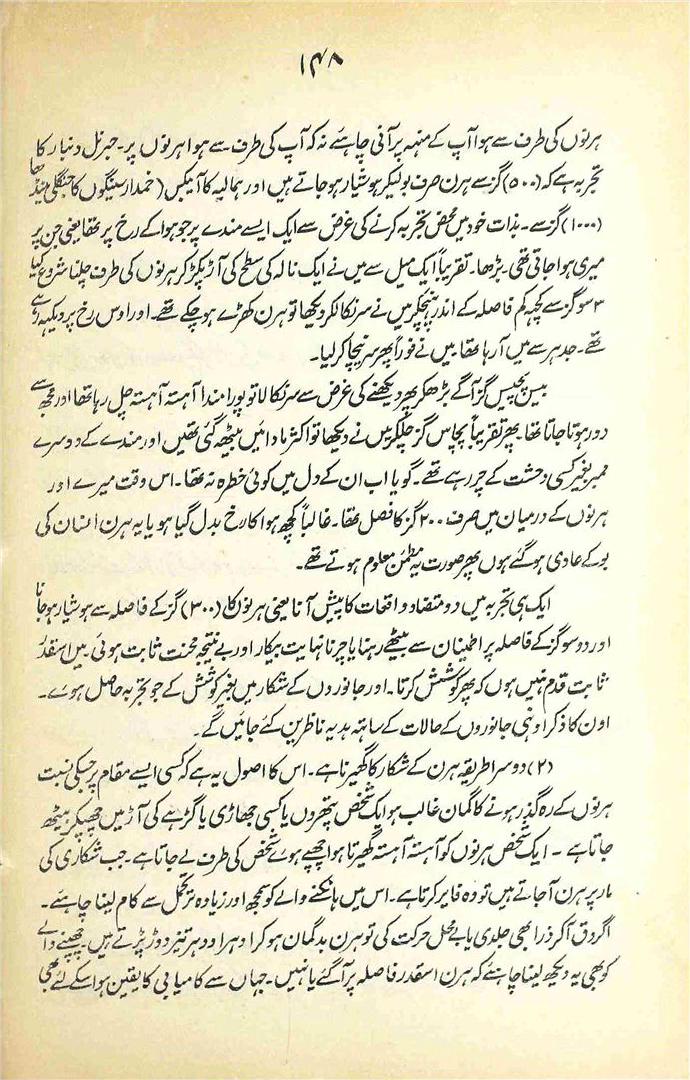 ۱۴۸
ہرنوں کی طرف سے ہوا آپ کے منہہ پر آنی چاہئے نہ کہ آپ کی طرف سے ہوا ہرنوں پر۔ جبرنل دنبار کا
تجربہ ہے کہ (۵۰۰) گز سے ہرن صرف بو لیکر ہوشیار ہو جاتے ہیں اور ہمالیہ کا آیبکس (خمدار سینگوں کا جنگلی مینڈھا
(۱۰۰۰) گز سے۔ بذات خود میں محض تجربہ کرنے کی غرض سے ایک ایسے مندے پر جو ہوا کے رخ پر تھا یعنی جن پر
میری ہوا جاتی تھی۔ بڑھا۔ تقریباً ایک میل سے میں نے ایک نالہ کی سطح کی آڑ پکڑ کر ہرنوں کی طرف چلنا شروع کیا
۳ سو گز سے کچھ کم فاصلہ کے اندر پہنچکر میں نے سر نکالکر دیکھا تو ہرن کھڑے ہو چکے تھے۔ اور اوس رخ پر دیکھ رہے
تھے۔ جدہر سے میں آ رہا تھا میں نے فوراً پھر سر نیچا کر لیا۔
بیس پچیس گز آگے بڑھکر پھر دیکھنے کی غرض سے سر نکالا تو پورا مندا آہستہ آہستہ چل رہا تھا اور مجھ سے
دور ہوتا جاتا تھا۔ پھر تقریباً پچاس گز چلکر میں نے دیکھا تو اکثر مادائیں بیٹھ گئی تھیں اور مندے کے دوسرے
ممبر بغیر کسی دحشت کے چر رہے تھے۔ گویا اب ان کے دل میں کوئی خطرہ نہ تھا۔ اس وقت میرے اور
ہرنوں کے درمیان میں صرف ۲۰۰ گز کا فصل تھا۔ غالباً کچھ ہوا کا رخ بدل گیا ہو یا یہ ہرن انسان کی
بو کے عادی ہو گئے ہوں بہر صورت یہ مطمئن معلوم ہوتے تھے۔
ایک ہی تجربہ میں دو متضاد واقعات کا پیش آنا یعنی ہرنوں کا (۳۰۰) گز کے فاصلہ سے ہوشیار ہو جانا
اور دو سو گز کے فاصلہ پر اطمینان سے بیٹھے رہنا یا چرنا نہایت بیکار اور بے نتیجہ محنت ثابت ہوئی میں اسقدر
ثابت قدم نہیں ہوں کہ پھر کوشش کرتا۔ اور جانوروں کے شکار میں بغیر کوشش کے جو تجربہ حاصل ہوے۔
اون کا ذکر اونہی جانوروں کے حالات کے ساتہ ہدیہ ناظرین کئے جائیں گے۔
(۲) دوسرا طریقہ ہرن کے شکار کا گھیرنا ہے۔ اس کا اصول یہ ہے کہ کسی ایسے مقام پر جسکی نسبت
ہرنوں کے رہ گذر ہونے کا گمان غالب ہو ایک شخص پتھروں یا کسی جھاڑی یا گڑہے کی آڑ میں چھپکر بیٹھ
جاتا ہے۔ ایک شخص ہرنوں کو آہستہ آہستہ گھیرتا ہوا چھپے ہوے شخص کی طرف لے جاتا ہے۔ جب شکاری کی
مار پر ہرن آ جاتے ہیں تو وہ فایر کرتا ہے۔ اس میں ہانکنے والے کو سمجھ اور زیادہ تر تحمل سے کام لینا چاہئے۔
اگر دق آ کر ذرا بھی جلدی یا بے محل حرکت کی تو ہرن بد گمان ہو کر ادہر اودہر تیز دوڑ پڑتے ہیں۔ چھپنے والے
کو بھی یہ دیکھ لینا چاہئے کہ ہرن اسقدر فاصلہ پر آ گئے یا نہیں۔ جہاں سے کامیابی کا یقین ہو اسکے لئے بھی